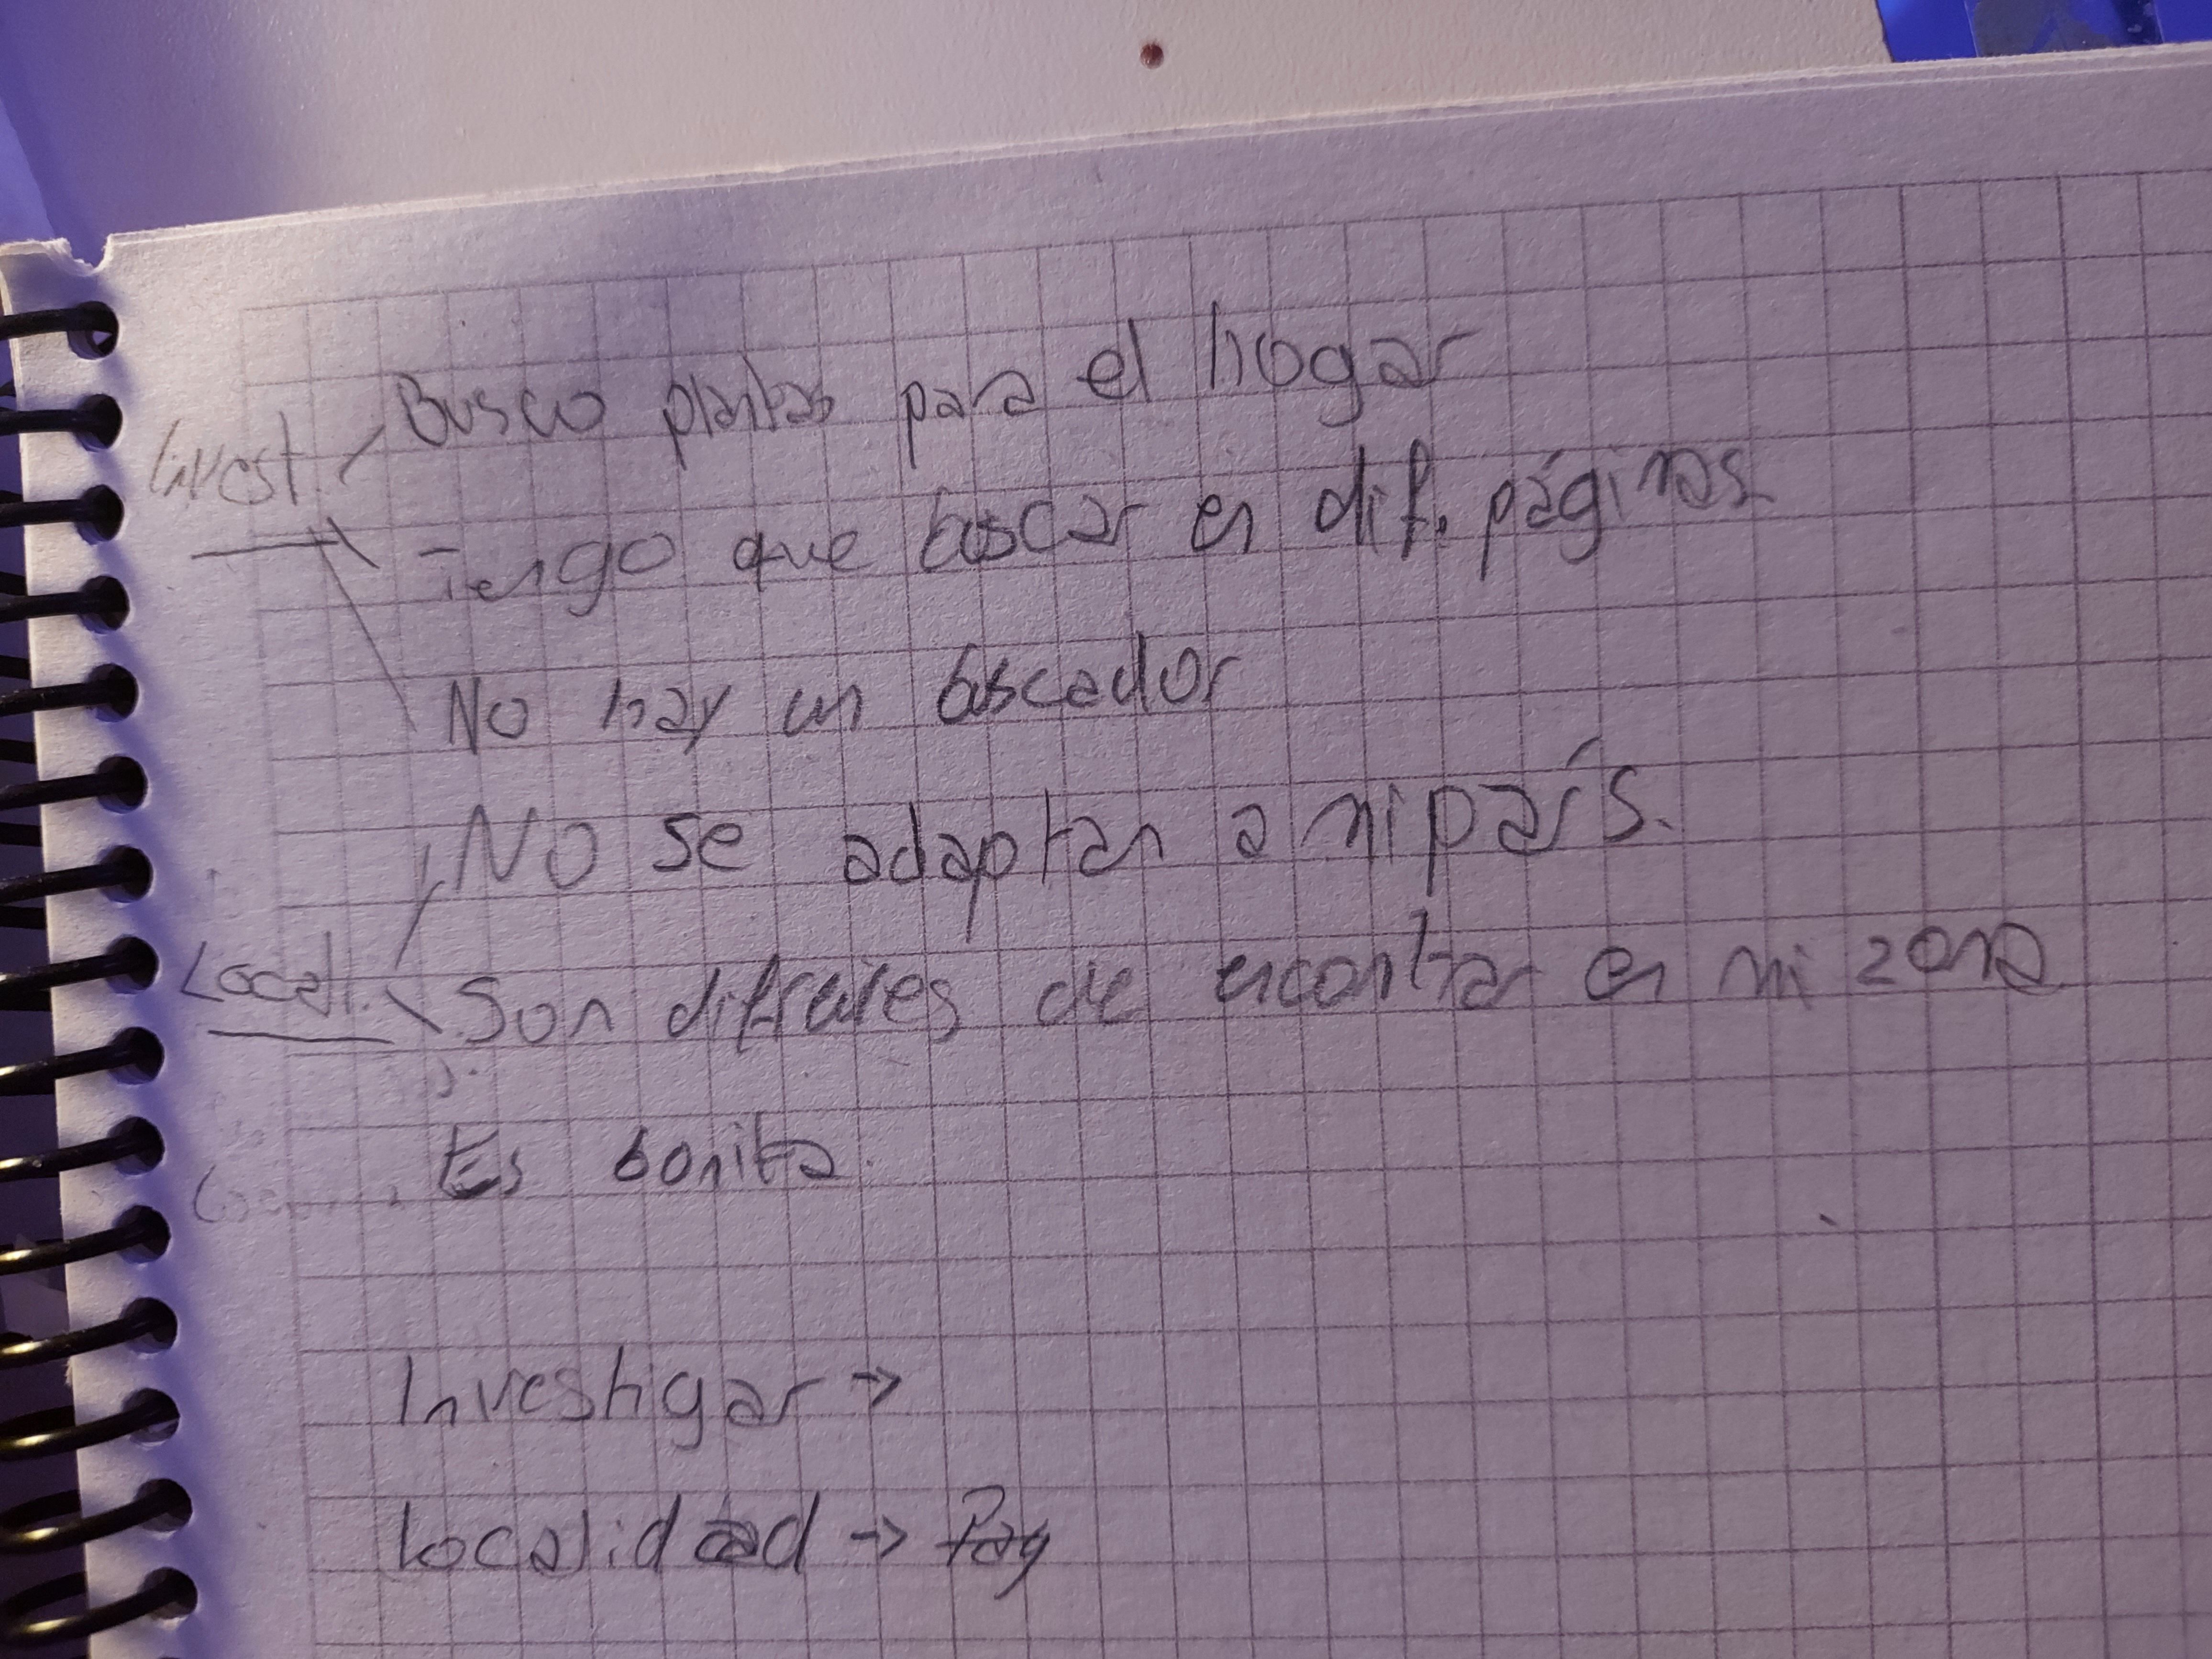 Invest. Busco plantas para el hogar
Tengo que buscar en dif. páginas
No hay un buscador
No se adaptan a mi país.
Local. Son difíciles de encontrar en mi zona
Es bonita.
Investigar →
Localidad → Pag